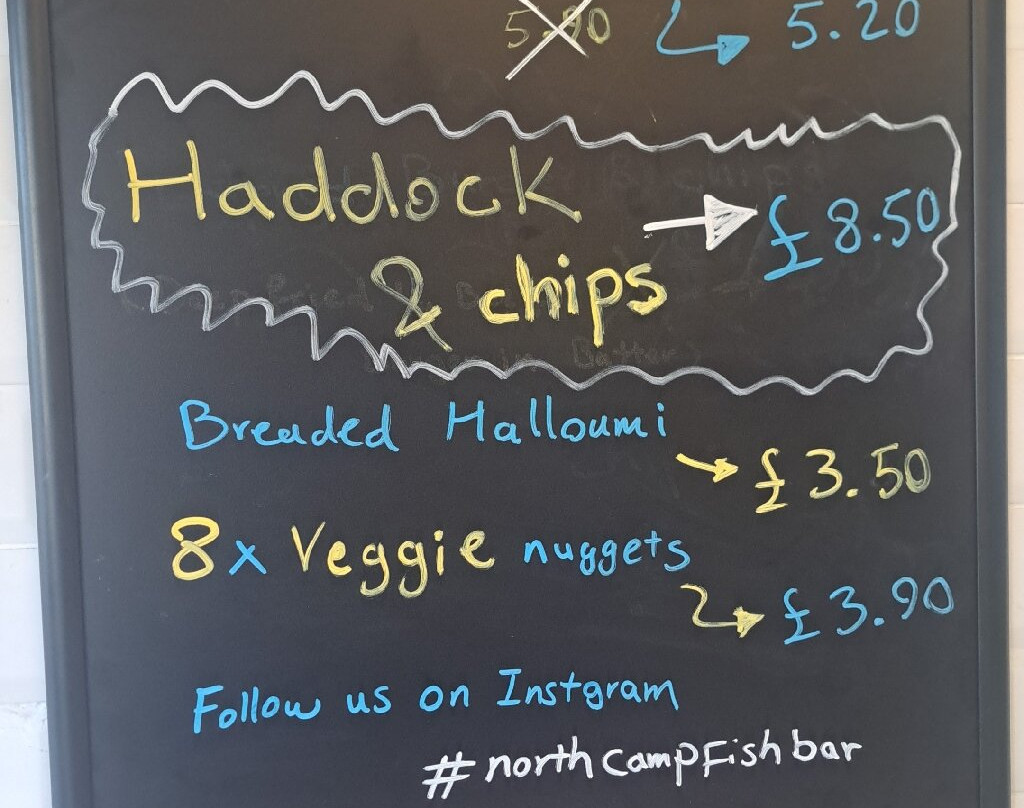 5.90 5.20
Haddock
£8.50
& chips
Breaded Halloumi
£3.50
8x Veggie nuggets
£3.90
Follow us on Instgram
#northcampFishbar